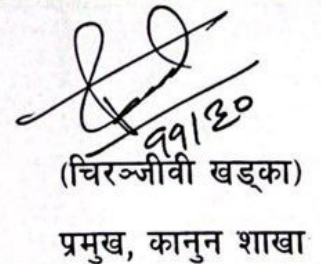 ११/३०
(चिरञ्जीवी खड्का)
प्रमुख, कानुन शाखा